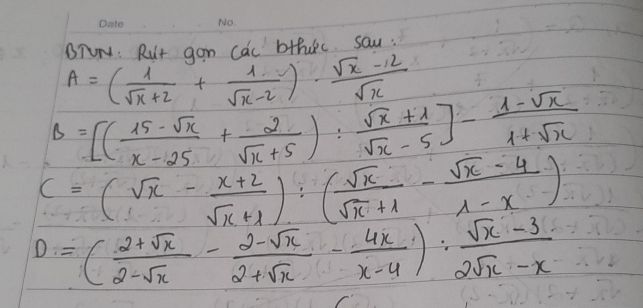 Date No.
BTVN: Rút gọn các bthức sau:
A = (1/(√x+2) + 1/(√x-2)) · (√x-2)/√x
B = [((15-√x)/(x-25) + 2/(√x+5)) : (√x+1)/(√x-5)] - (1-√x)/(1+√x)
C = (√x - (x+2)/(√x+1)) : (√x/(√x+1) - (√x-4)/(1-x))
D = ((2+√x)/(2-√x) - (2-√x)/(2+√x) - 4x/(x-4)) : (√x-3)/(2√x-x)